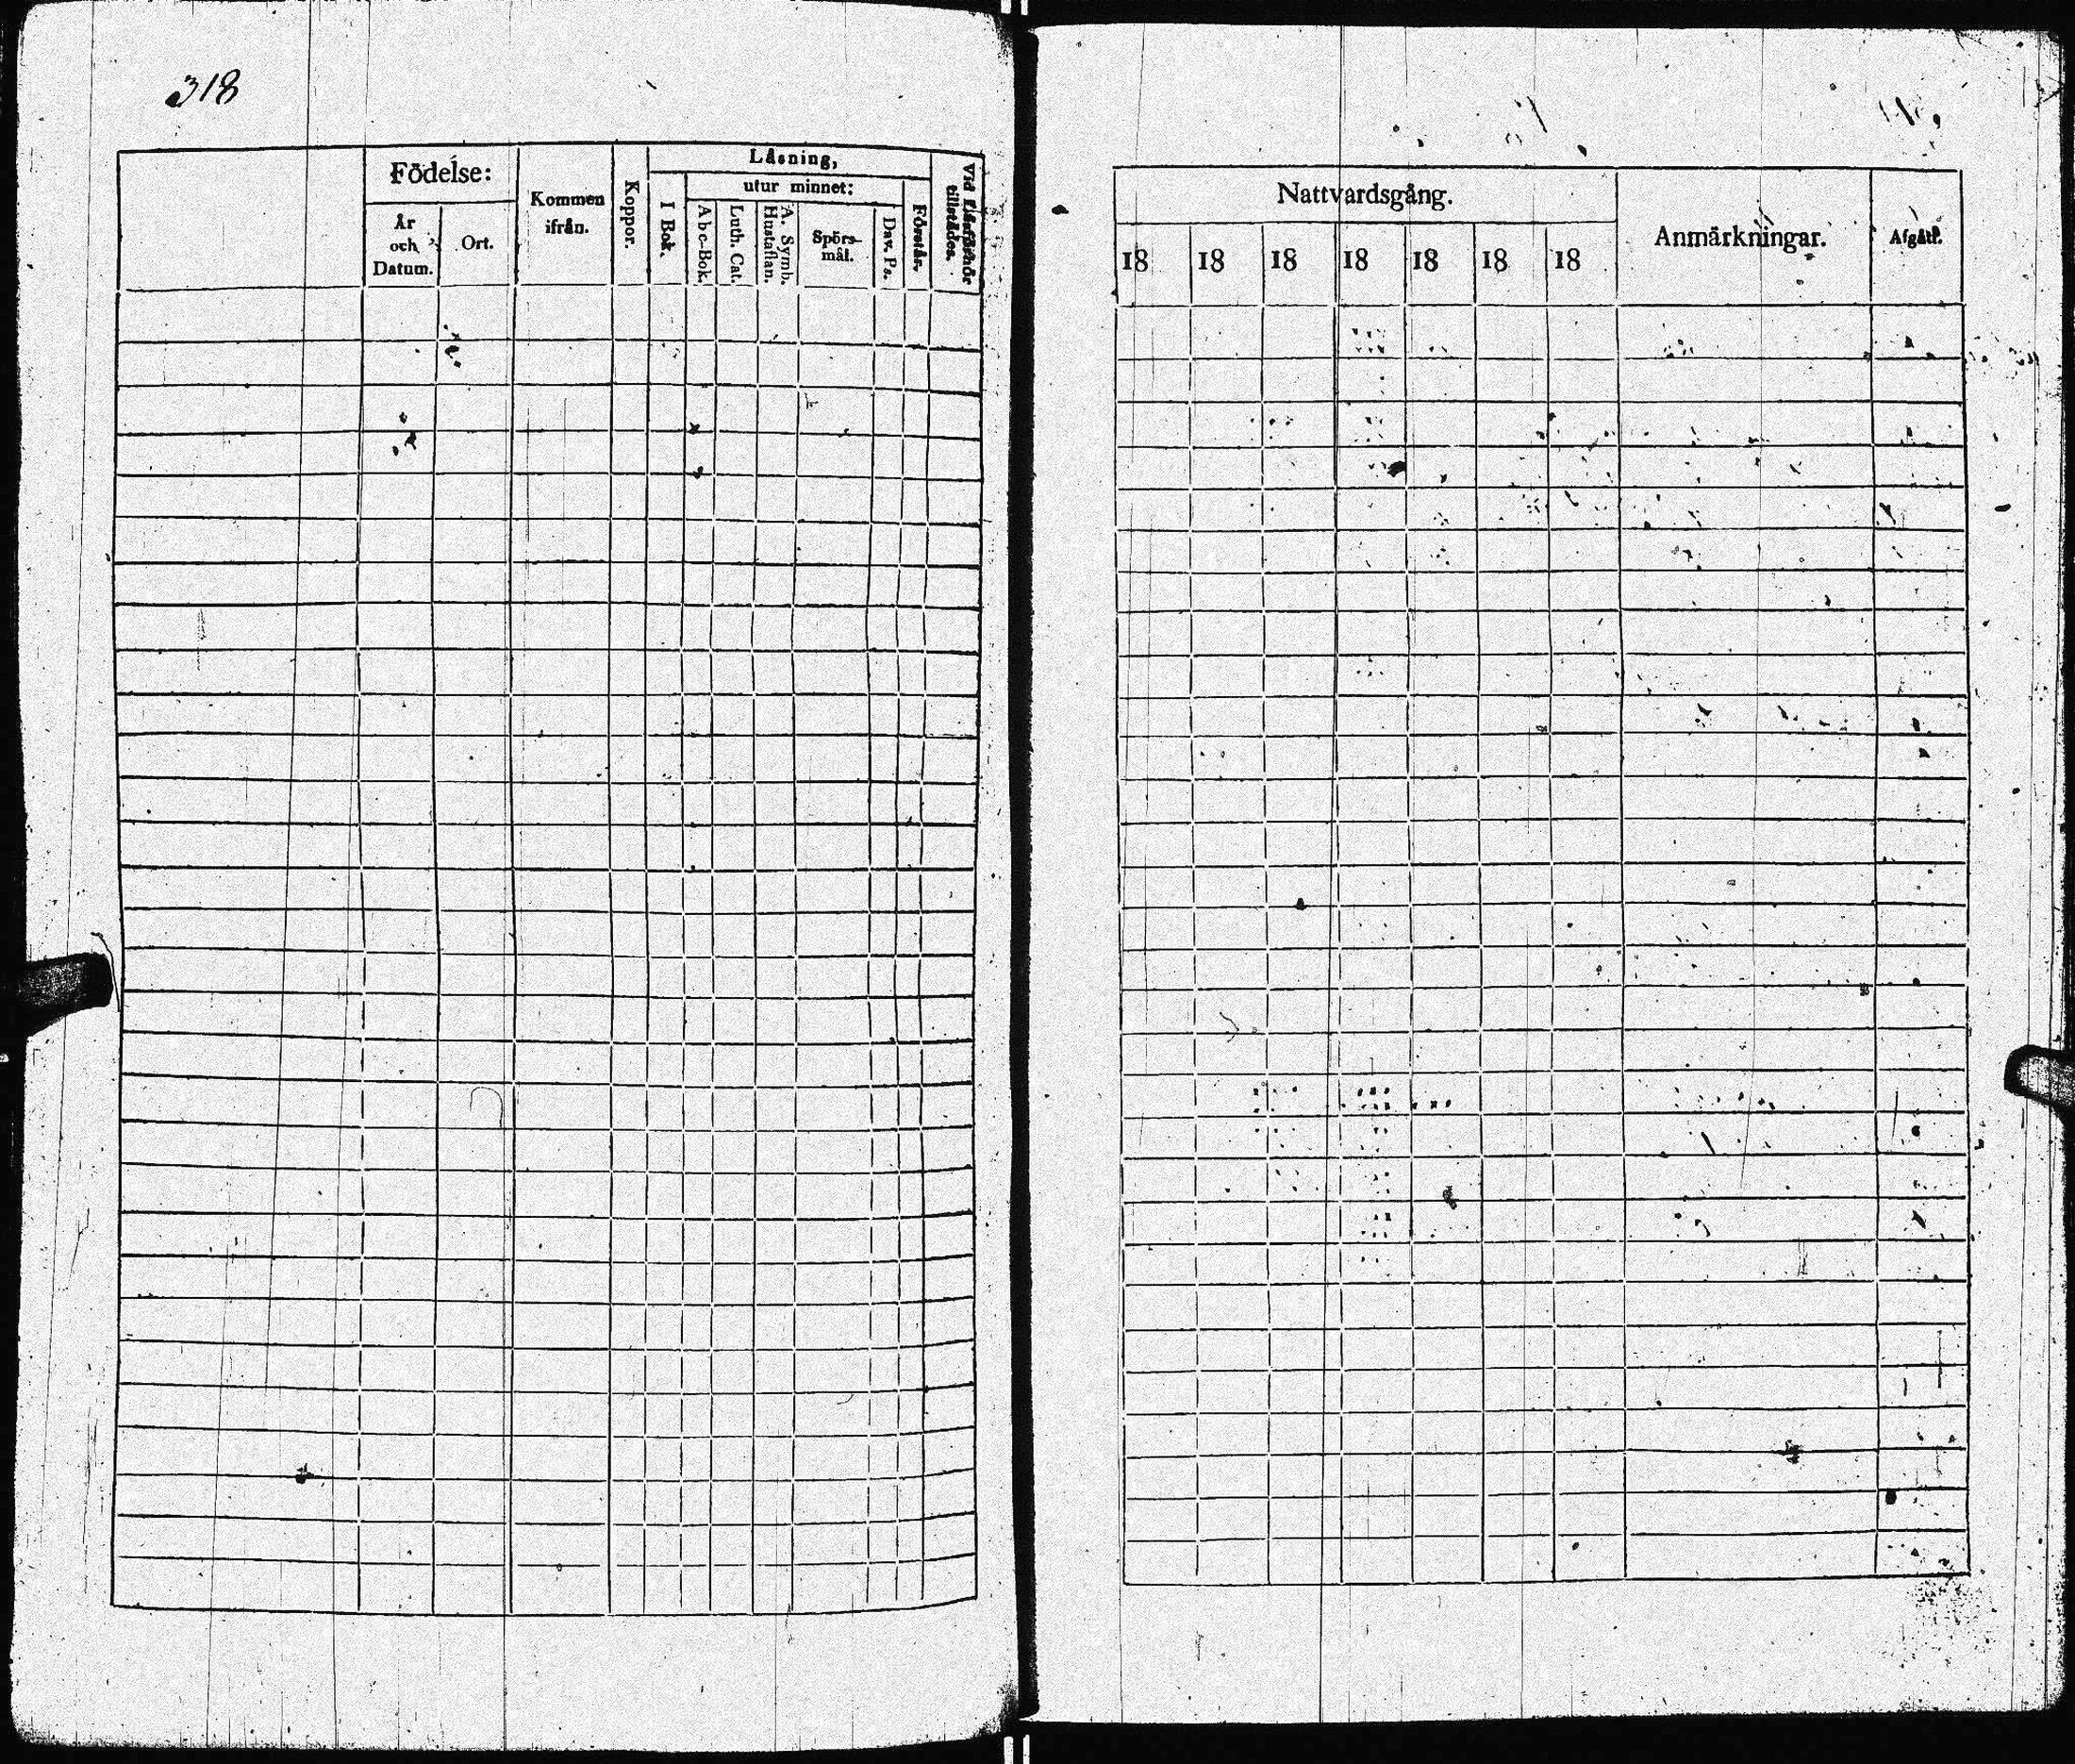 318
Födelse:
År och Datum.
Ort.
Kommen ifrån.
Koppor.
Läsning,
I Bok.
utur minnet:
Abc-Bok.
Luth. Cat.
A. Symb. Hustaflan.
Spörs-mål.
Dav. Ps.
Förstår.
Vid Läsförhör tillstädes.
Nattvardsgång.
18 18 18 18 18 18 18
Anmärkningar.
Afgått.